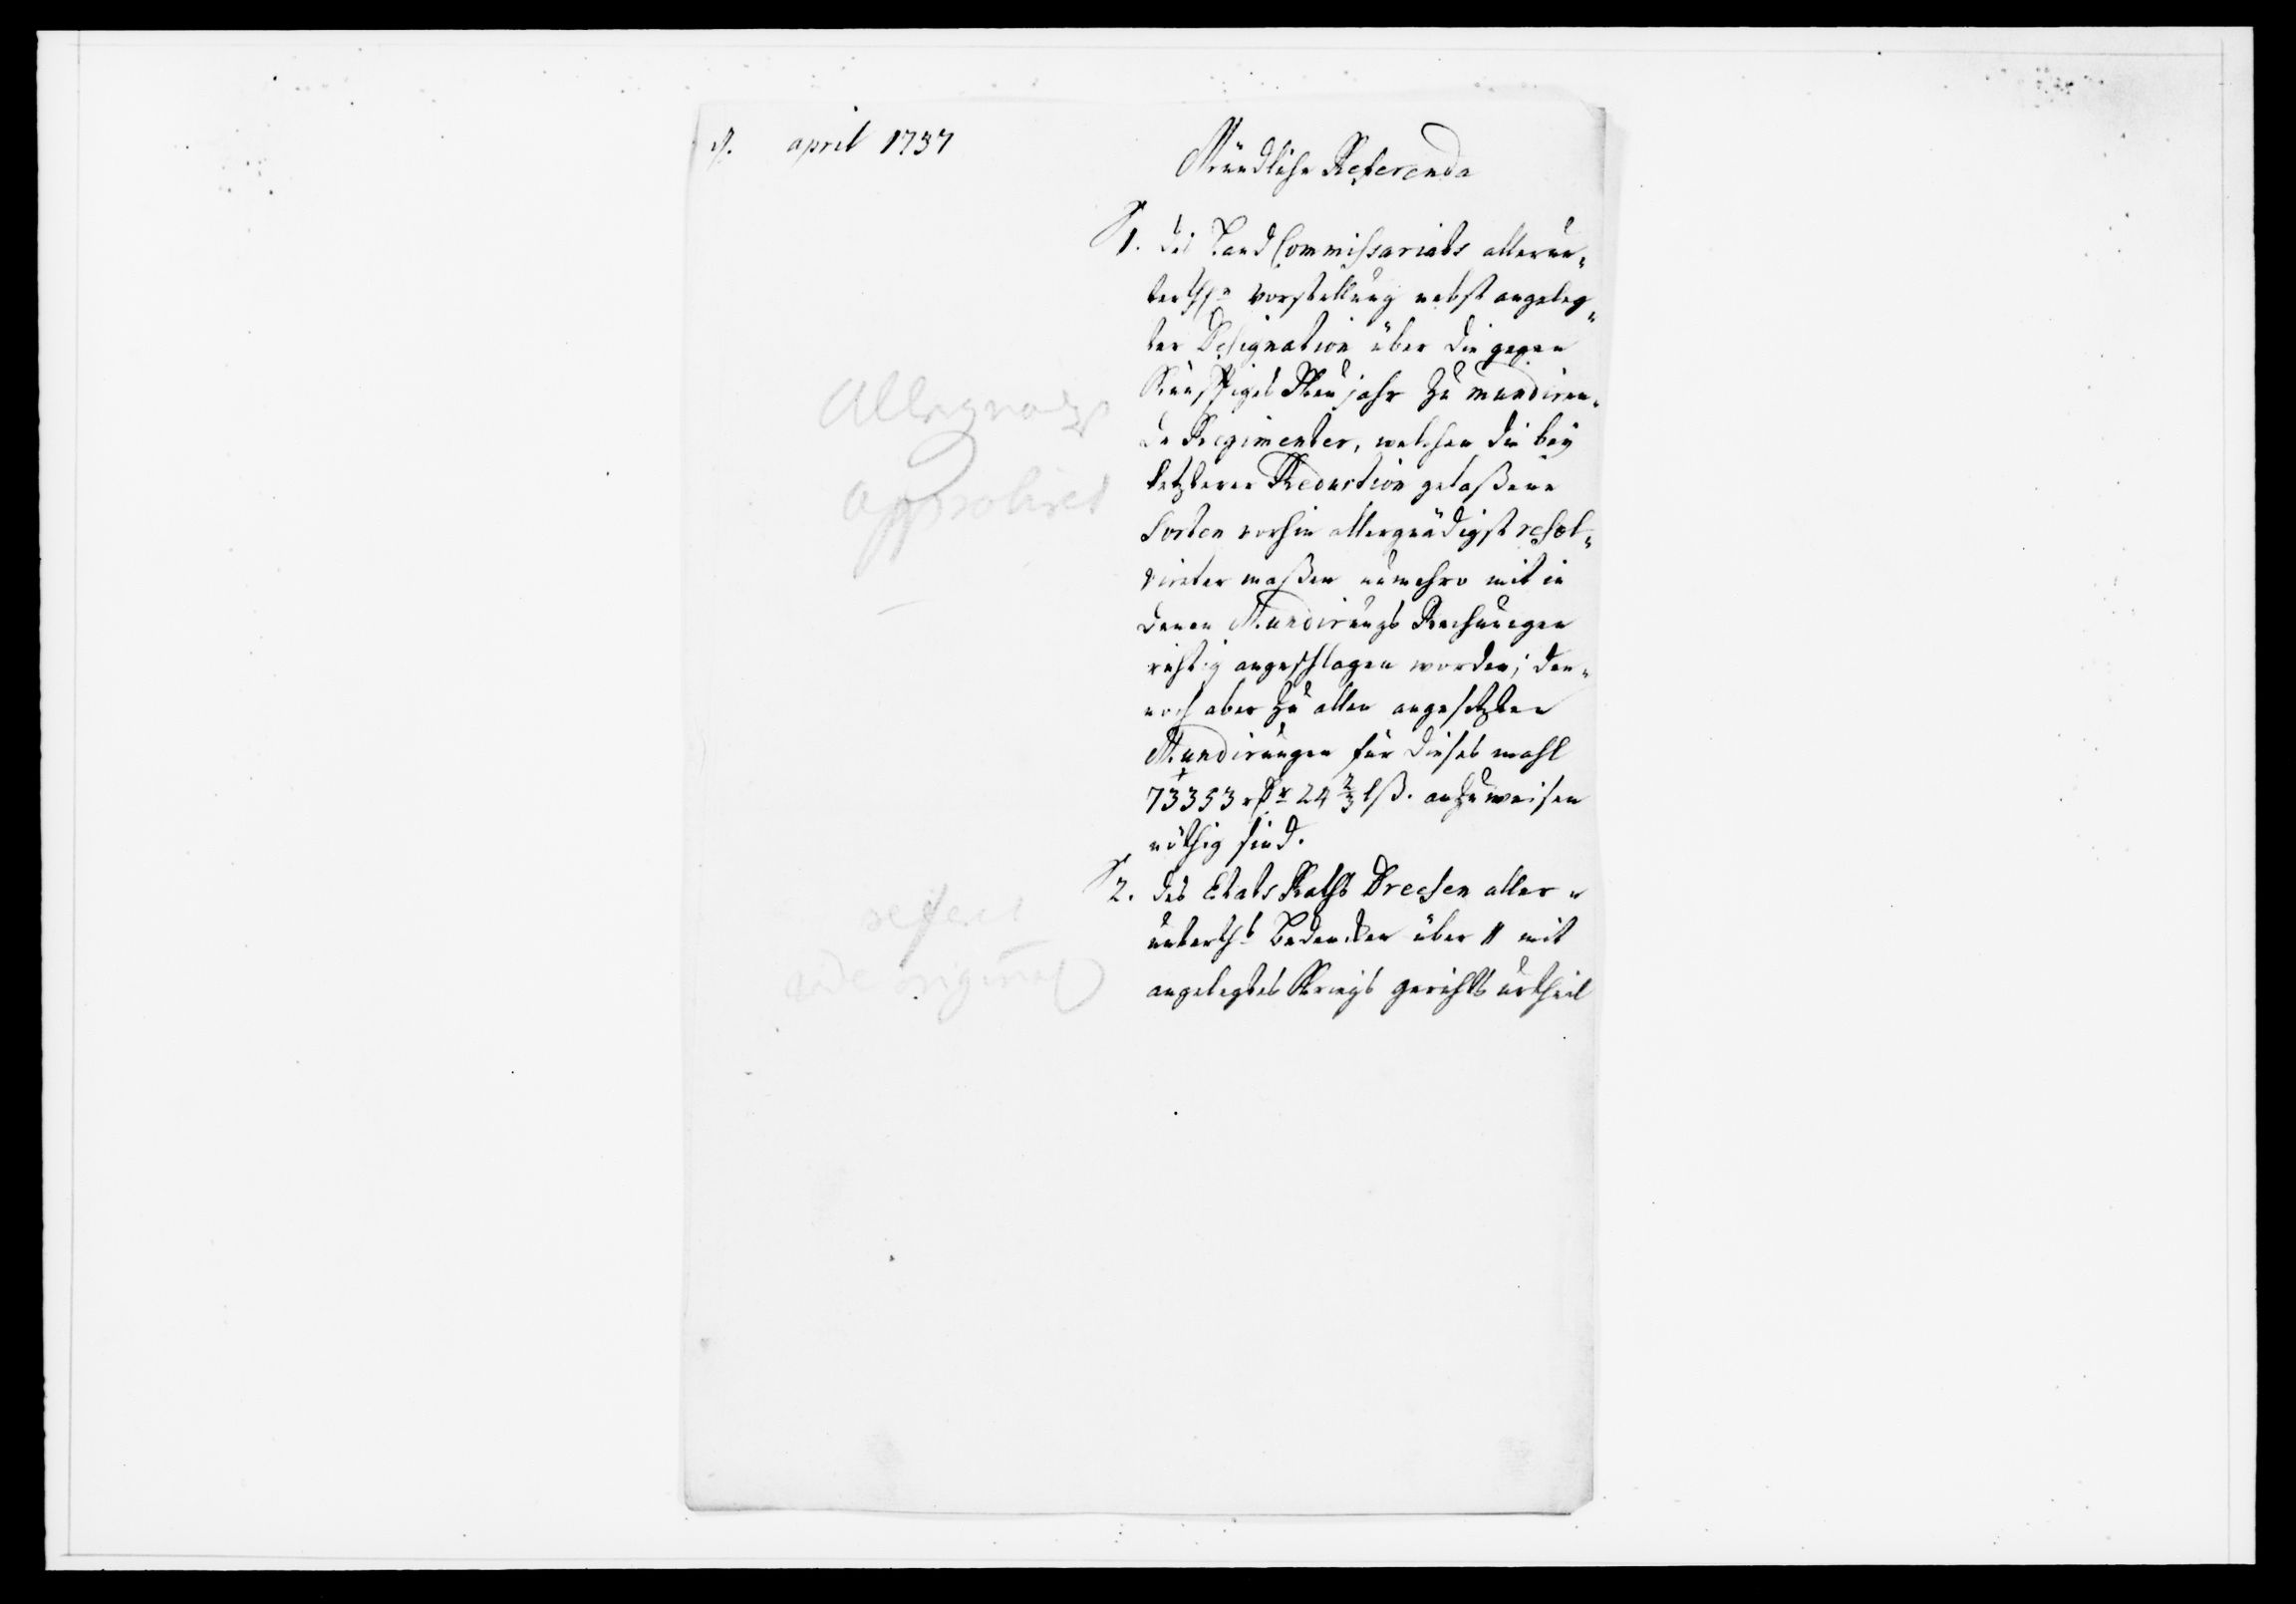 april 1737
Mündliche Referenda
1. des Land Commissariats allerun-
terth.e Vorstellung nebst angeleg-
ter Designation über die gegen
Künfftiges Neujahr zu mundiren-
de Regimenter, welchen die bey
letzterer Reduction gelaßene
Sorten vorhin allergnädigst resol-
virter maßen numehro mit in
denen Mundirungs Rechnungen
richtig angeschlagen worden; den-
noch aber zu allen angesetzten
Mundirungen für dieses mahl
73353 rdr 24 2/3 lß. anzuweisen
nöthig sind.
2. des Etats Raths Dreesen aller-
unterth.s Bedencken über 11 mit
angelegtes Kriegs gerichts urtheil
Allergnädgst
approbiret
vide original